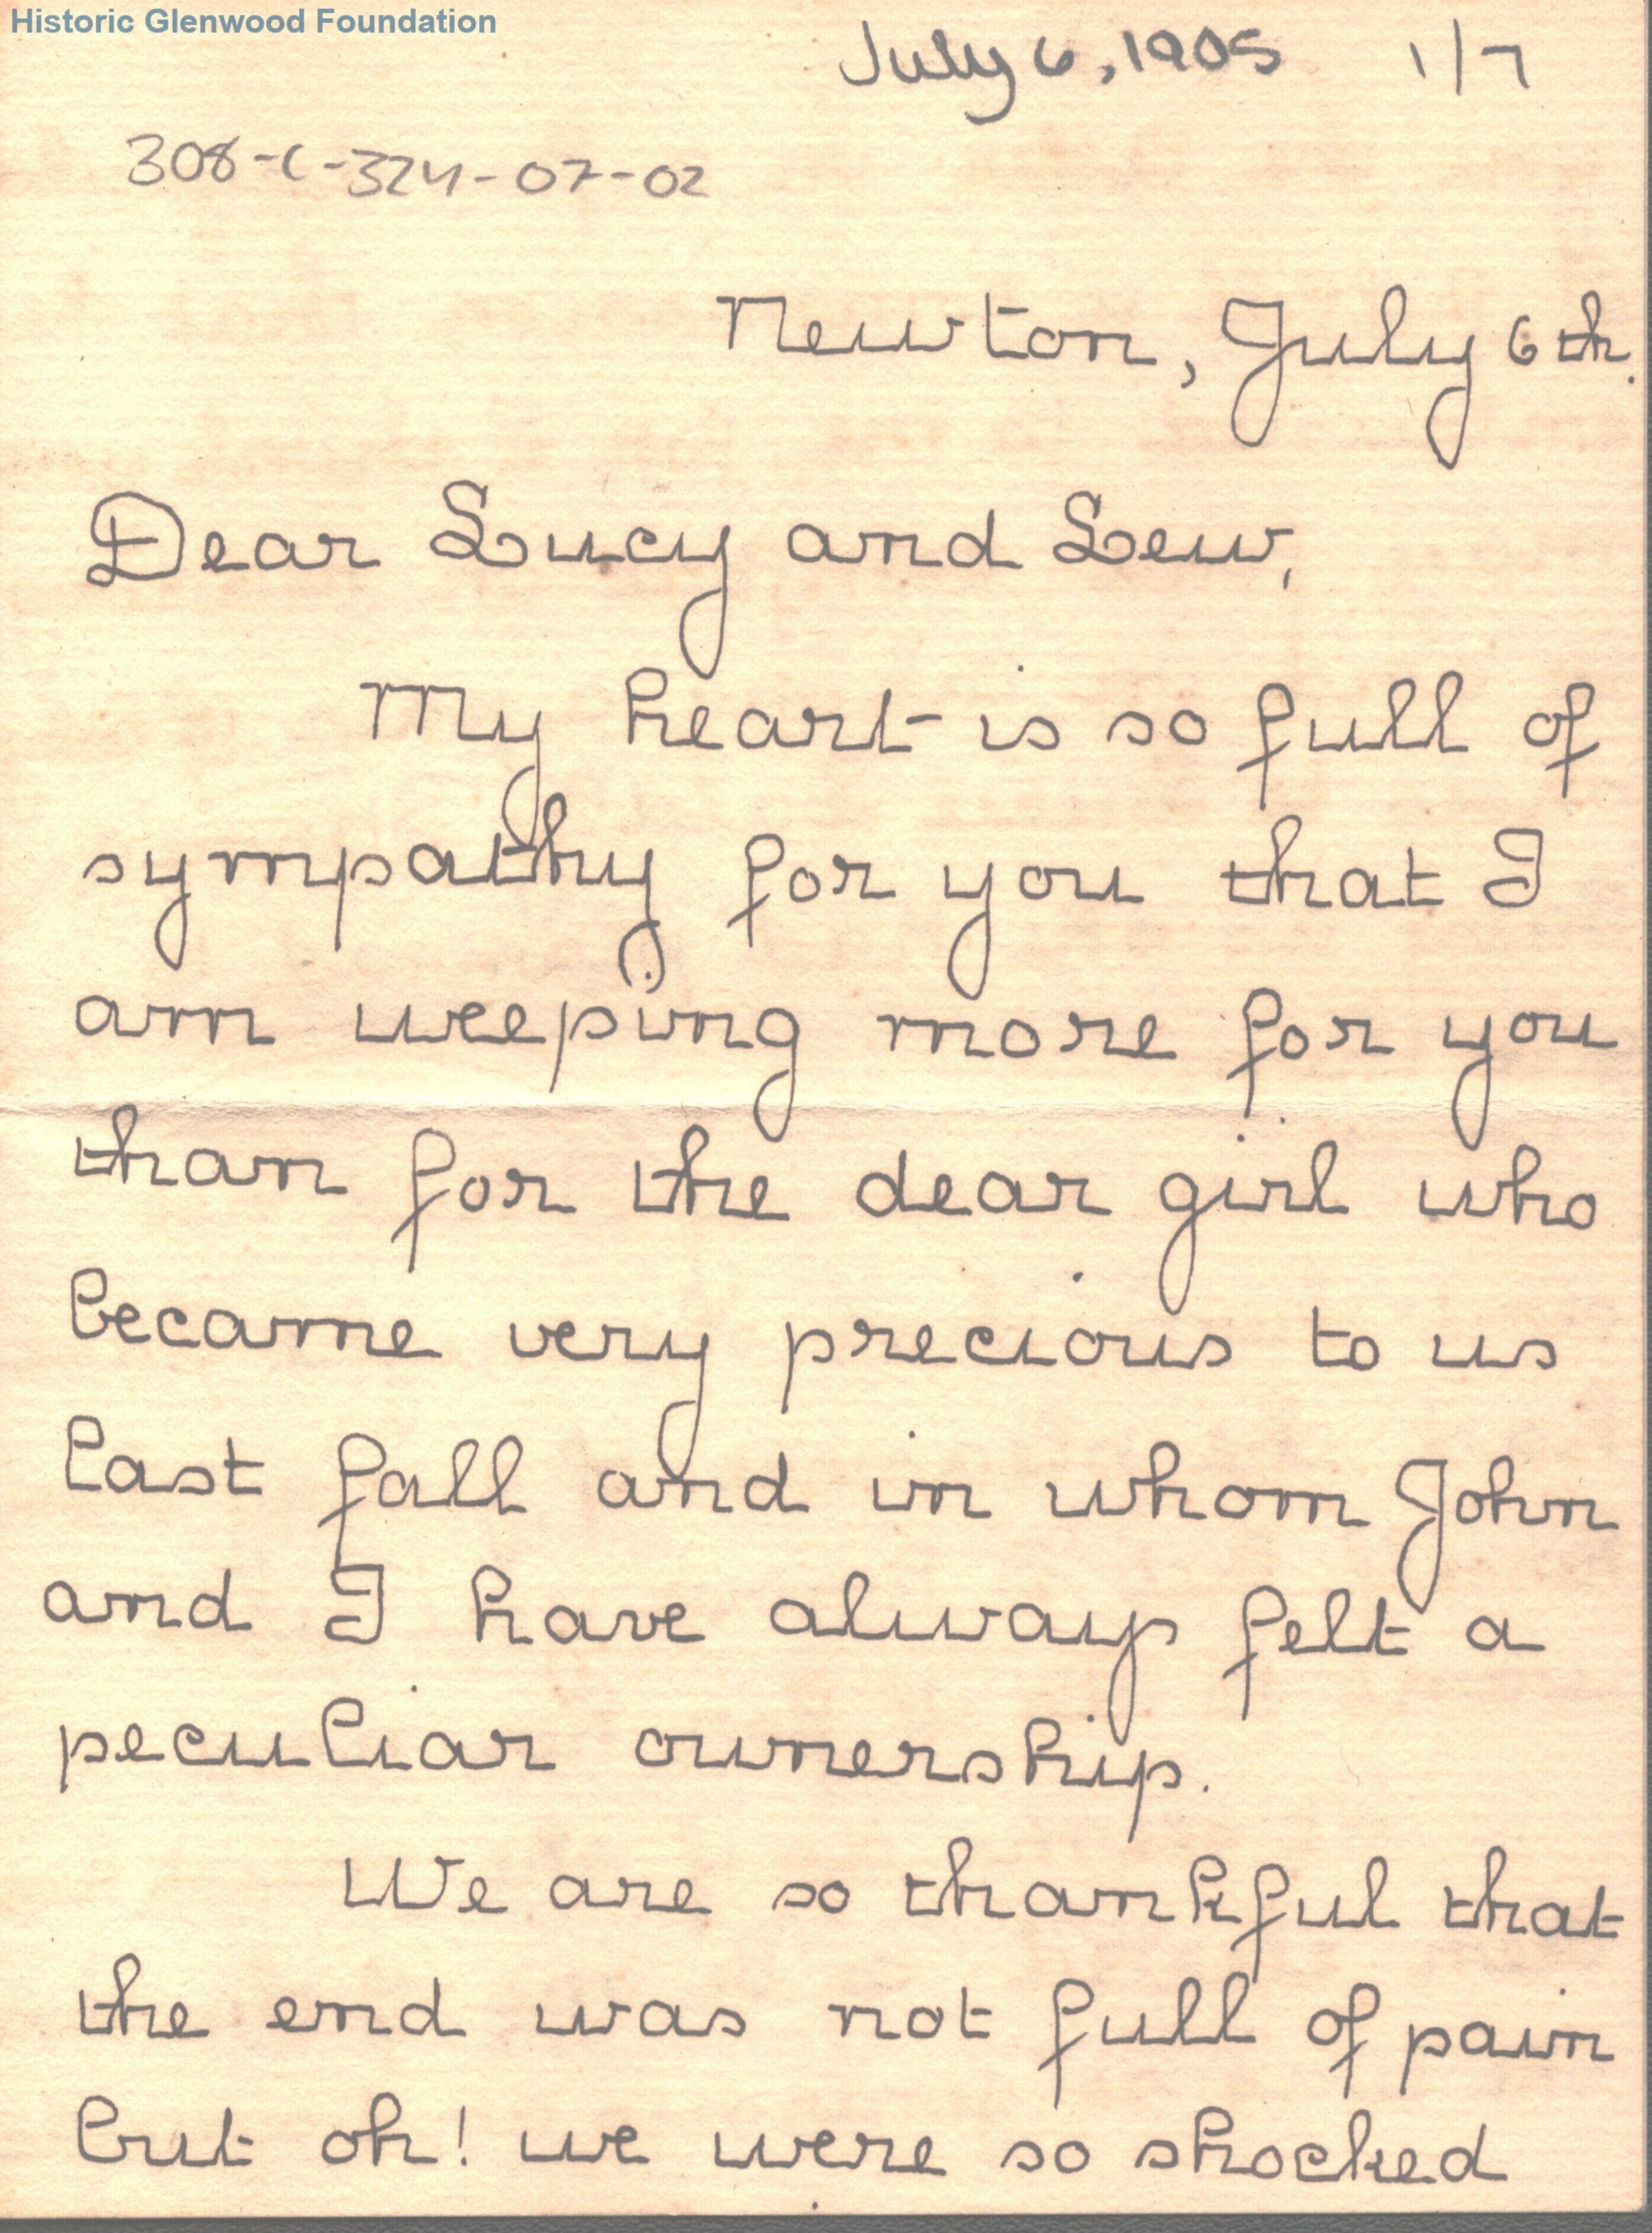 Historic Glenwood Foundation
July 6, 1905 1/7
308-C-324-07-02
Newton, July 6th.
Dear Lucy and Lew,
My heart is so full of
sympathy for you that I
am weeping more for you
than for the dear girl who
became very precious to us
last fall and in whom John
and I have always felt a
peculiar ownership.
We are so thankful that
the end was not full of pain
but oh! we were so shocked